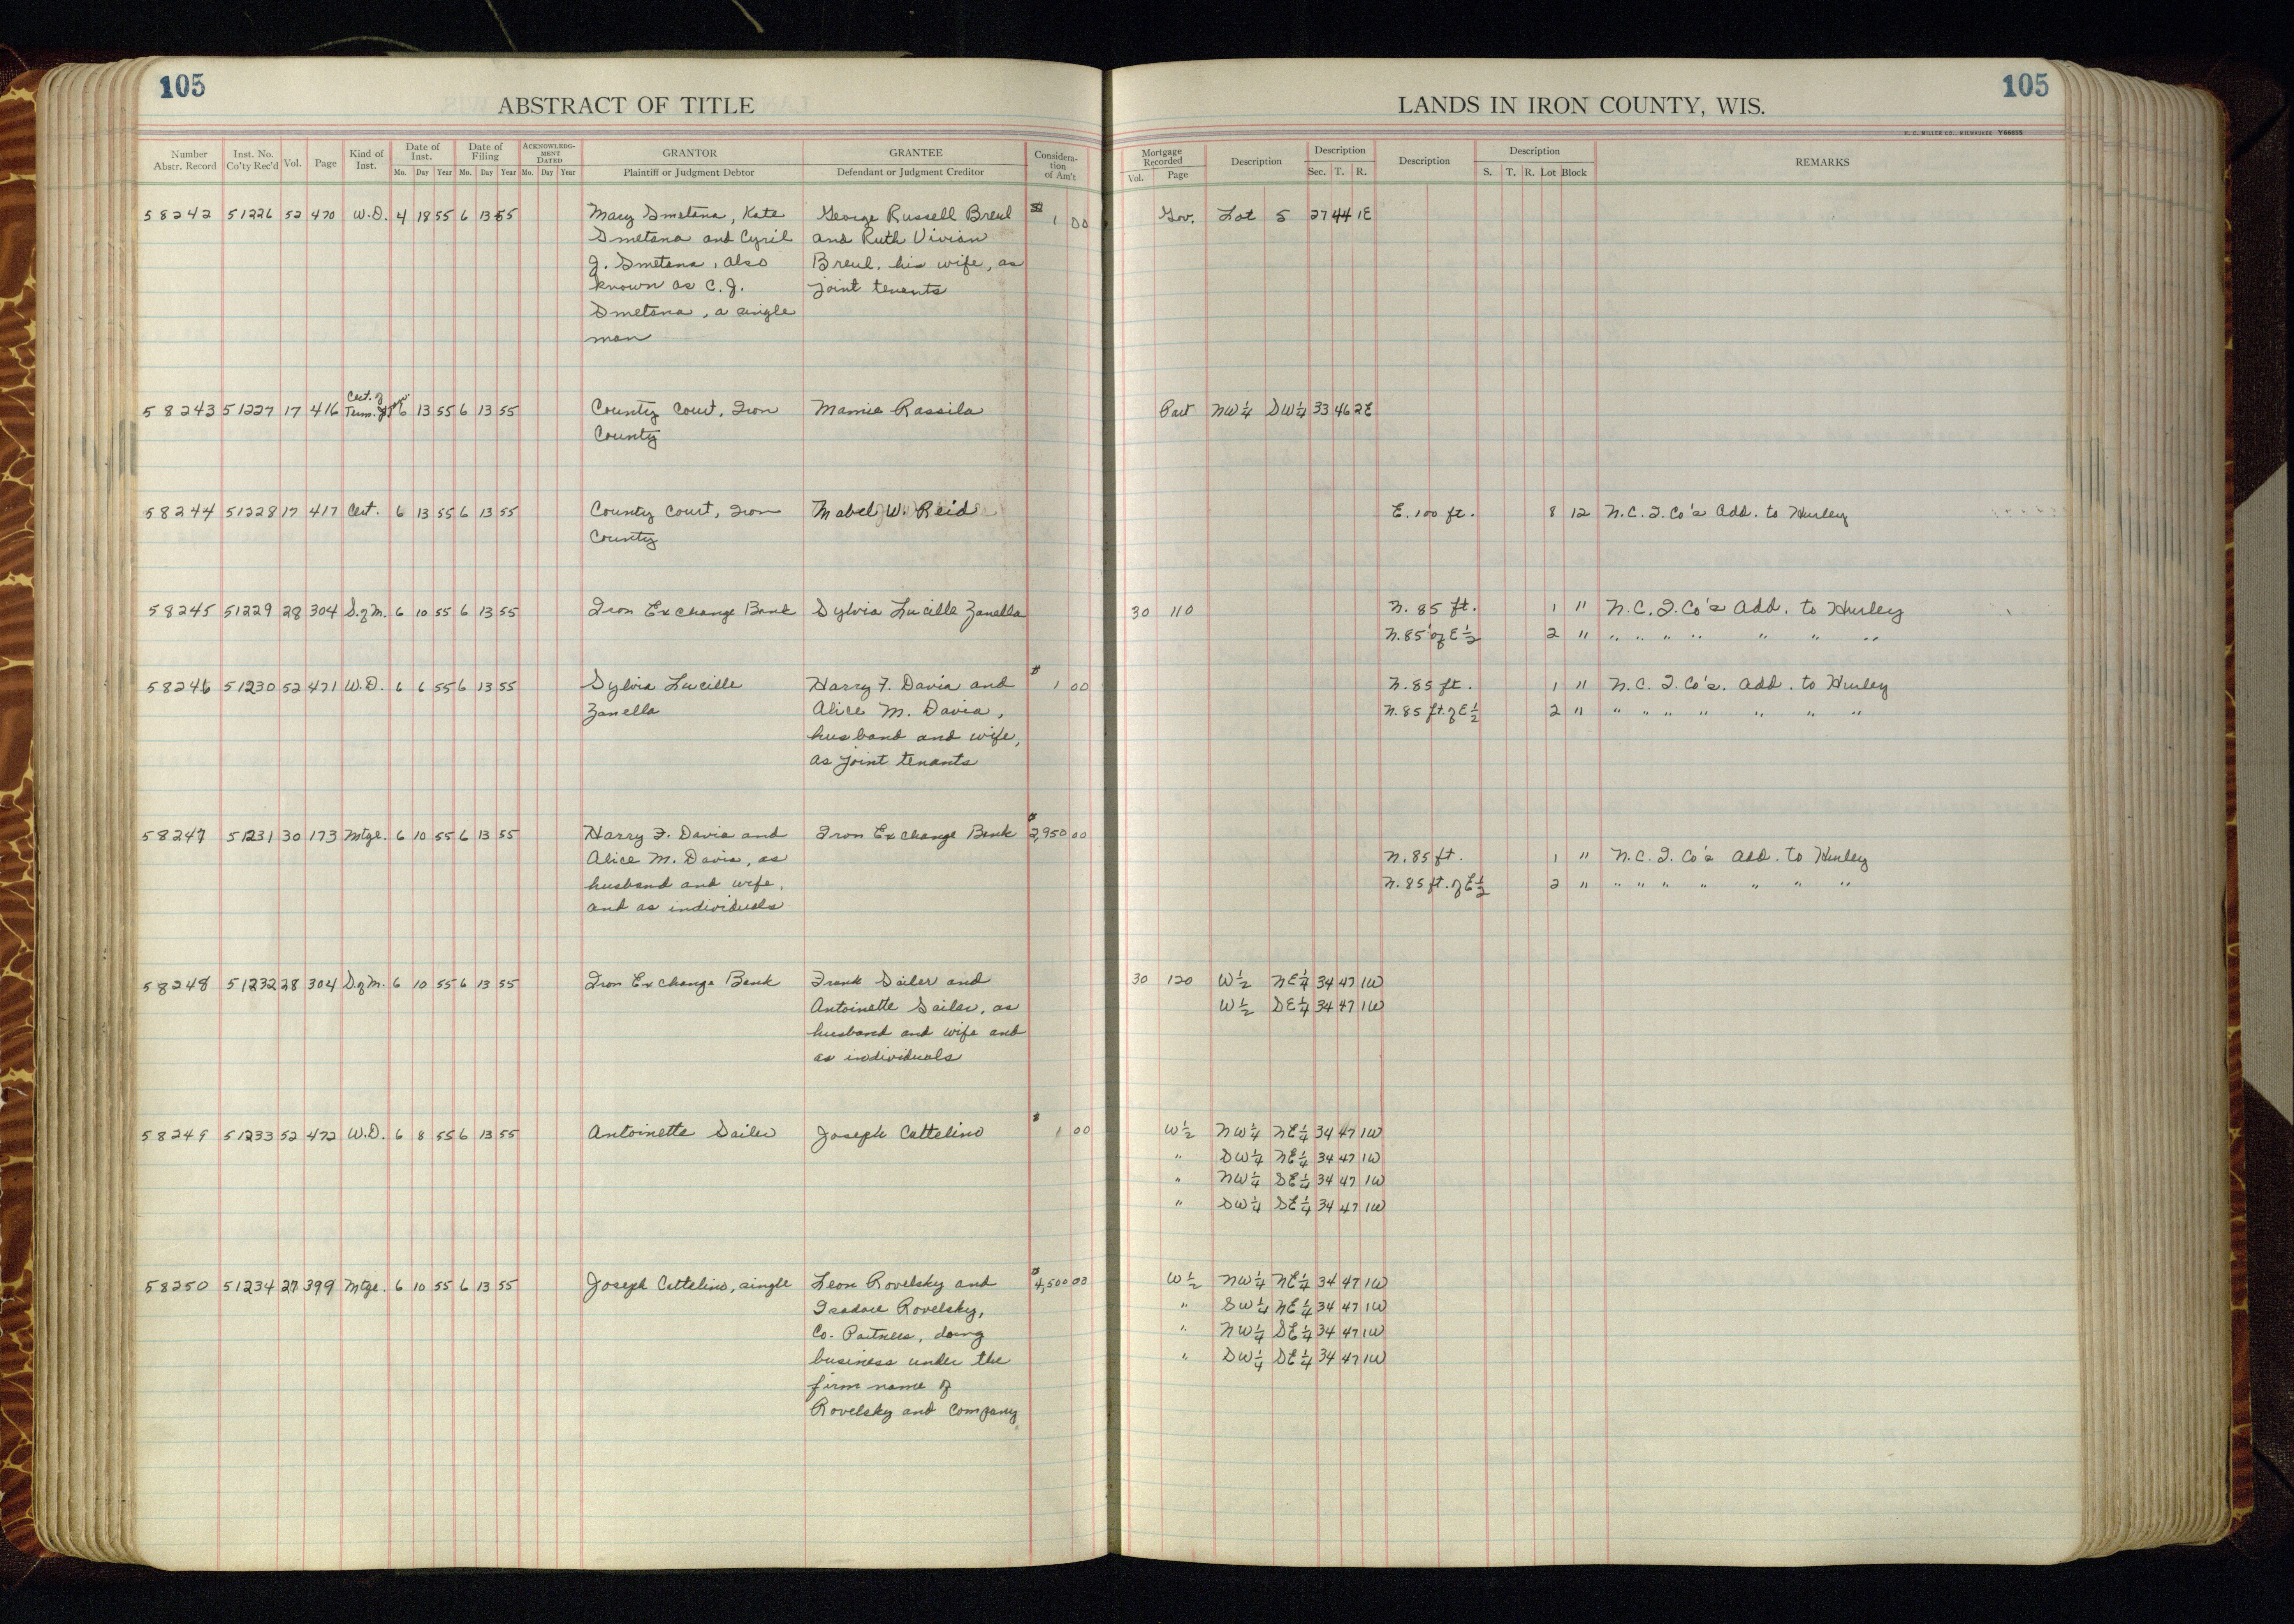 105
ABSTRACT OF TITLE
Number Abstr. Record
Inst. No. Co'ty Rec'd
Vol.
Page
Kind of Inst.
Date of Inst.
Mo. Day Year
Date of Filing
Mo. Day Year
ACKNOWLEDG-MENT DATED
Mo. Day Year
GRANTOR
Plaintiff or Judgment Debtor
GRANTEE
Defendant or Judgment Creditor
Considera-tion of Am't
58242 51226 52 470 W.D. 4 18 55 6 13 55 Mary Smetana, Kate George Russell Breul $1 00
Smetana and Cyril and Ruth Vivian
J. Smetana, also Breul, his wife, as
known as C. J. joint tenants
Smetana, a single
man
58243 51227 17 416 Cert. of Term. 6 13 55 6 13 55 County Court, Iron Mamie Rassila
County
58244 51228 17 417 Cert. 6 13 55 6 13 55 County Court, Iron Mabel W. Reid
County
58245 51229 28 304 S. of M. 6 10 55 6 13 55 Iron Exchange Bank Sylvia Lucille Zanella
58246 51230 52 471 W.D. 6 6 55 6 13 55 Sylvia Lucille Harry F. Davia and $1 00
Zanella Alice M. Davia,
husband and wife,
as joint tenants
58247 51231 30 173 Mtge. 6 10 55 6 13 55 Harry F. Davia and Iron Exchange Bank $2,950 00
Alice M. Davia, as
husband and wife,
and as individuals
58248 51232 28 304 S. of M. 6 10 55 6 13 55 Iron Exchange Bank Frank Sailer and
Antoinette Sailer, as
husband and wife and
as individuals
58249 51233 52 472 W.D. 6 8 55 6 13 55 Antoinette Sailer Joseph Cattelino $1 00
58250 51234 27 399 Mtge. 6 10 55 6 13 55 Joseph Cattelino, single Leon Rovelsky and $4,500 00
Isadore Rovelsky,
Co. Partners, doing
business under the
firm name of
Rovelsky and Company
105
LANDS IN IRON COUNTY, WIS.
H. C. MILLER CO., MILWAUKEE Y66655
Mortgage Recorded
Vol. Page
Description
Description
Sec. T. R.
Description
Description
S. T. R. Lot Block
REMARKS
Gov. Lot 5 27 44 1E
Part NW¼ SW¼ 33 46 2E
E. 100 ft. 8 12 N.C.I. Co's Add. to Hurley
30 110 N. 85 ft. 1 " N.C.I. Co's Add. to Hurley
N. 85' of E½ 2 " " " " " " " "
N. 85 ft. 1 " N.C.I. Co's. Add. to Hurley
N. 85 ft. of E½ 2 " " " " " " " "
N. 85 ft. 1 " N.C.I. Co's Add. to Hurley
N. 85 ft. of E½ 2 " " " " " " " "
30 120 W½ NE¼ 34 47 1W
W½ SE¼ 34 47 1W
W½ NW¼ NE¼ 34 47 1W
" SW¼ NE¼ 34 47 1W
" NW¼ SE¼ 34 47 1W
" SW¼ SE¼ 34 47 1W
W½ NW¼ NE¼ 34 47 1W
" SW¼ NE¼ 34 47 1W
" NW¼ SE¼ 34 47 1W
" SW¼ SE¼ 34 47 1W